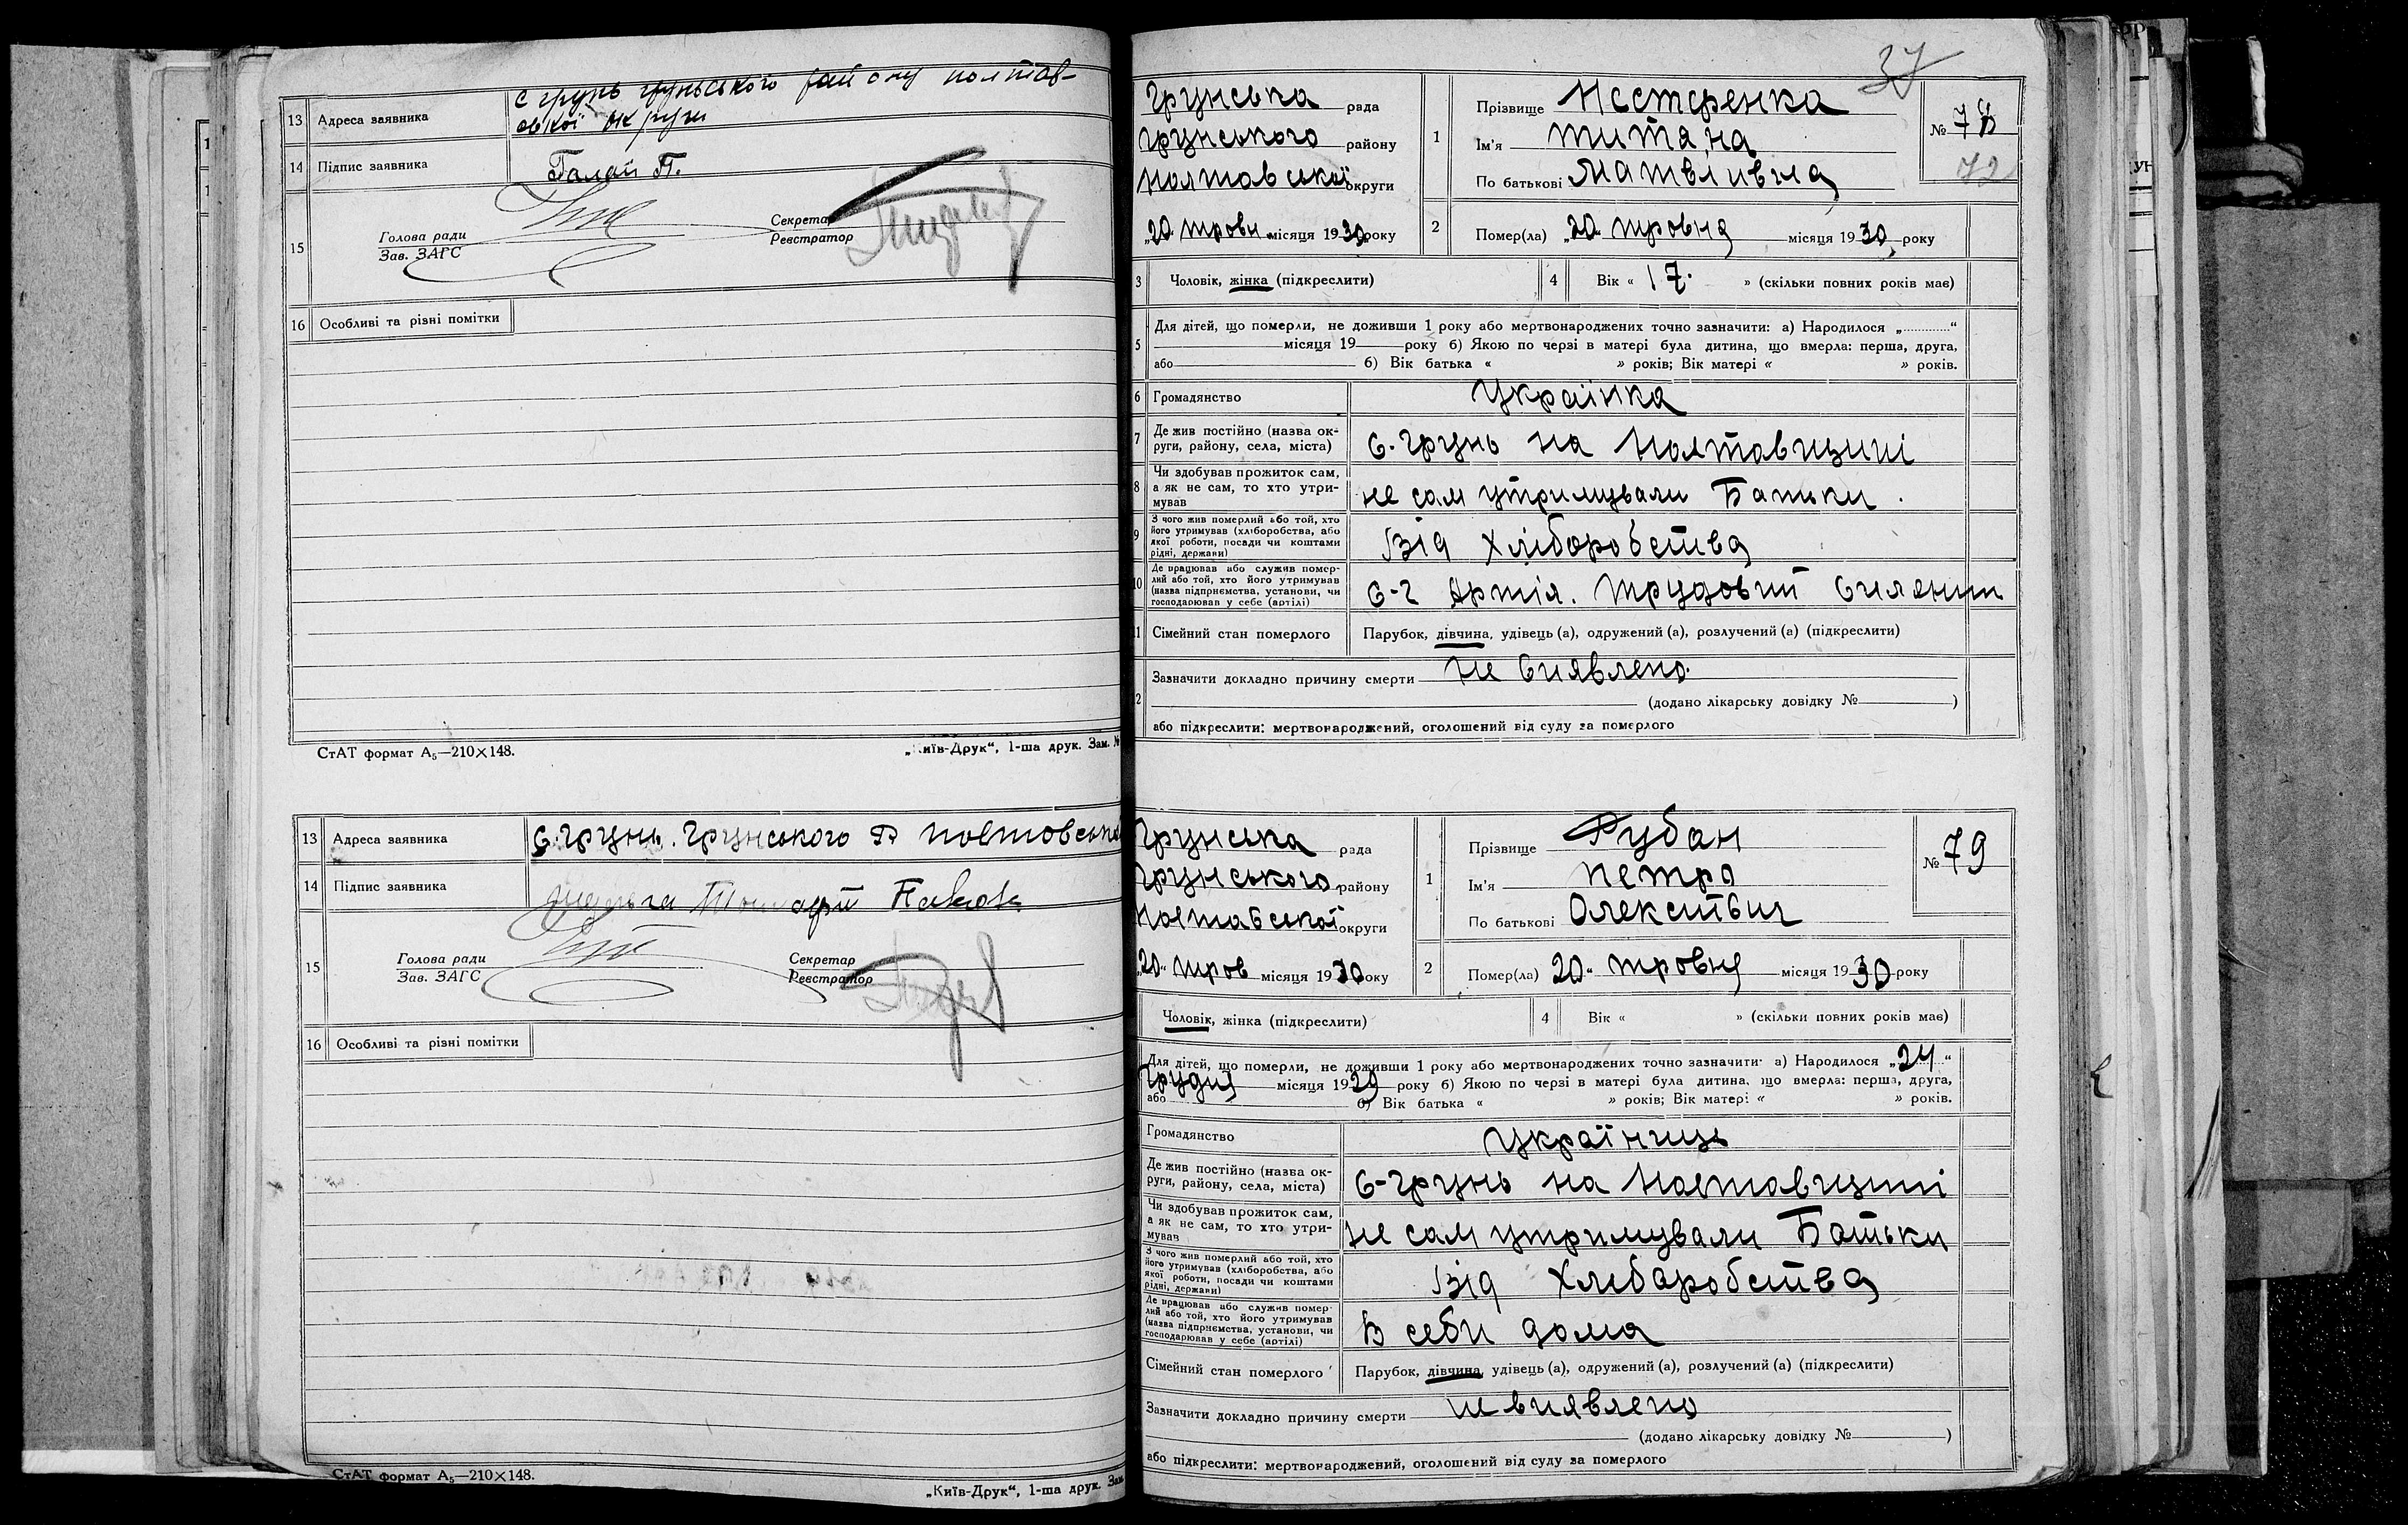 13 Адреса заявника с грунь грунського району полтав-
ської округи
14 Підпис заявника Галай П.
15 Голова ради
Зав. ЗАГС
Секретар
Реєстратор
16 Особливі та різні помітки
СтАТ формат А5—210×148.
„Київ-Друк“, 1-ша друк. Зам. №
13 Адреса заявника С. Грунь. Грунського Р Полтовської
14 Підпис заявника
15 Голова ради
Зав. ЗАГС
Секретар
Реєстратор
16 Особливі та різні помітки
СтАТ формат А5—210×148.
„Київ-Друк“, 1-ша друк. Зам.
37
Грунська рада
Грунського району
Полтавської округи
„20„ тровн місяця 1930 року
1 Прізвище Нестеренка
Ім'я Титяна
По батькові Матвливна
№ 78
72
2 Помер(ла) „20„ тровня місяця 1930, року
3 Чоловік, жінка (підкреслити)
4 Вік « 17. » (скільки повних років має)
5 Для дітей, що померли, не доживши 1 року або мертвонароджених точно зазначити: а) Народилося „.............“
місяця 19 року б) Якою по черзі в матері була дитина, що вмерла: перша, друга,
або б) Вік батька « » років; Вік матері « » років.
6 Громадянство Українка
7 Де жив постійно (назва округи, району, села, міста) С. Грунь на Полтавщині
8 Чи здобував прожиток сам, а як не сам, то хто утримував не сам утримували Батьки.
9 З чого жив померлий або той, хто його утримував (хліборобства, або якої роботи, посади чи коштами рідні, держави) Від Хліборобства
10 Де працював або служив померлий або той, хто його утримував (назва підприємства, установи, чи господарював у себе (артілі) С-г Артіл. Трудовий
11 Сімейний стан померлого Парубок, дівчина, удівець (а), одружений (а), розлучений (а) (підкреслити)
2 Зазначити докладно причину смерти не виявлено.
(додано лікарську довідку № )
або підкреслити: мертвонароджений, оголошений від суду за померлого
Грунська рада
Грунського району
Полтавської округи
„20„ тров місяця 1930 року
1 Прізвище Рубан
Ім'я Петро
По батькові Олекситвич
№ 79
2 Помер(ла) 20„ тровня місяця 1930 року
Чоловік, жінка (підкреслити)
4 Вік « » (скільки повних років має)
Для дітей, що померли, не доживши 1 року або мертвонароджених точно зазначити: а) Народилося „24“
Грудня місяця 1929 року б) Якою по черзі в матері була дитина, що вмерла: перша, друга,
або б) Вік батька « » років; Вік матері « » років.
Громадянство Україниць
Де жив постійно (назва округи, району, села, міста) С-Грунь на Полтавщині
Чи здобував прожиток сам, а як не сам, то хто утримував не сам утримували Батьки
З чого жив померлий або той, хто його утримував (хліборобства, або якої роботи, посади чи коштами рідні, держави) Від Хлеборобства
Де працював або служив померлий або той, хто його утримував (назва підприємства, установи, чи господарював у себе (артілі) В себи дома
Сімейний стан померлого Парубок, дівчина, удівець (а), одружений (а), розлучений (а) (підкреслити)
Зазначити докладно причину смерти не виявлено
(додано лікарську довідку № )
або підкреслити: мертвонароджений, оголошений від суду за померлого